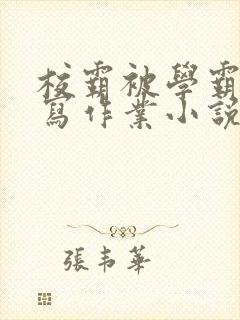 校霸被學霸
寫作業小說
張韋華